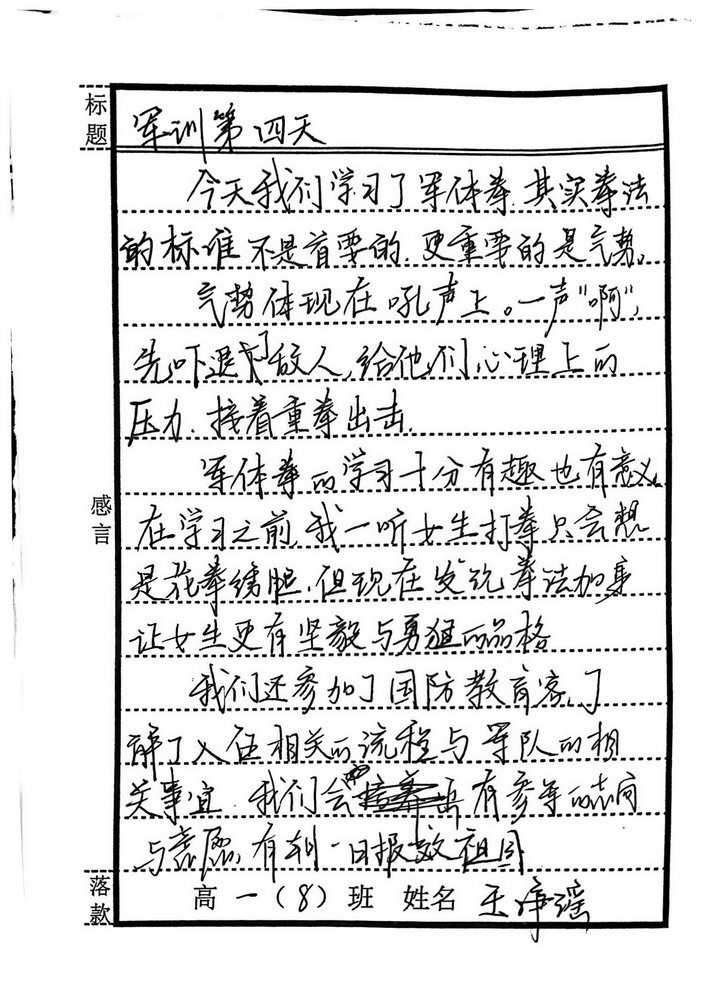 标题
军训第四天
今天我们学习了军体拳.其实拳法
的标准不是首要的.更重要的是气势。
气势体现在吼声上。一声“啊”,
先吓退了敌人,给他们心理上的
压力.接着重拳出击.
军体拳的学习十分有趣也有意义。
感言
在学习之前,我一听女生打拳只会想
是花拳绣腿.但现在发现拳法加身
让女生更有坚毅与勇猛的品格
我们还参加了国防教育客,了
解了入伍相关的流程与军队的相
关事宜.我们会有参军的志向
与意愿,有朝一日报效祖国
落款
高一(8)班 姓名 王瑶